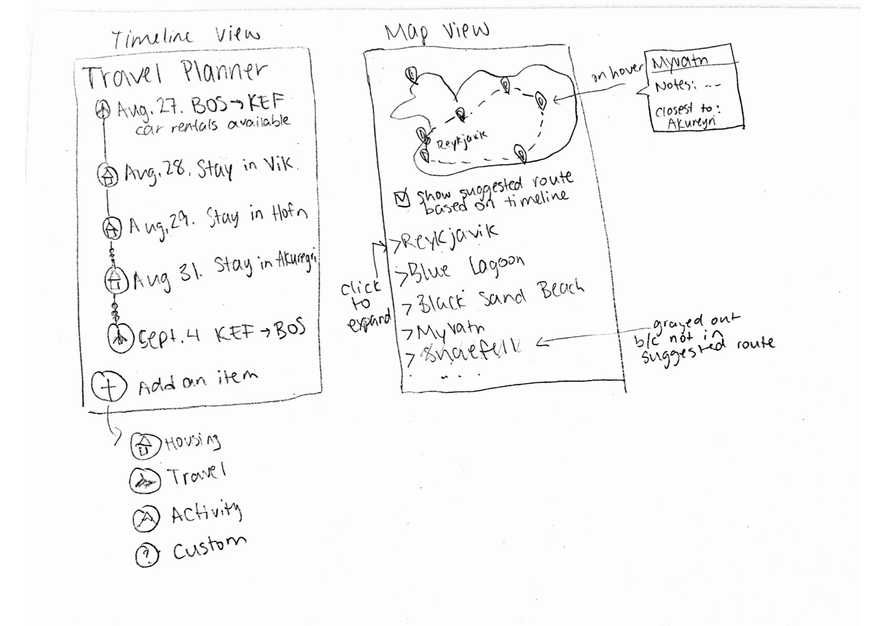 Timeline View
Travel Planner
Aug. 27. BOS→KEF
car rentals available
Aug. 28. Stay in Vik.
Aug. 29. Stay in Hofn
Aug 31. Stay in Akureyri
Sept. 4 KEF→BOS
+ Add an item
Housing
Travel
Activity
? Custom
Map View
Reykjavik
on hover
Myvatn
Notes: --
Closest to:
Akureyri
show suggested route
based on timeline
>Reykjavik
>Blue Lagoon
>Black Sand Beach
>Myvatn
>Snaefell
. . . .
click
to
expand
grayed out
b/c not in
suggested route